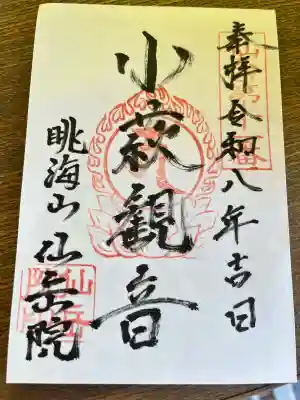 奉拝令和八年吉日
小萩観音
眺海山 仙岳院